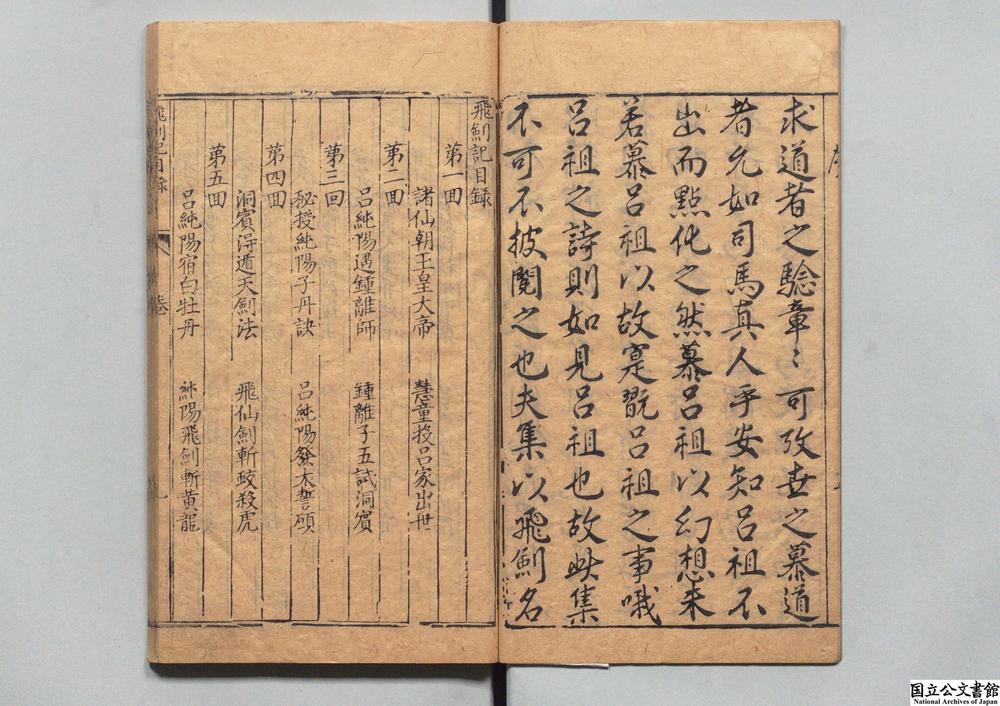 求道者之驗章〻可攷世之慕道
者允如司馬真人乎安知呂祖不
出而點化之然慕呂祖以幻想未
若慕呂祖以故寔翫呂祖之事哦
呂祖之詩則如見呂祖也故此集
不可不披閱之也夫集以飛劍名
飛劍記目録
第一囬
諸仙朝王皇大帝 慧童投呂家出世
第二囬
呂純陽遇鍾離師 鍾離子五試洞賓
第三囬
秘授純陽子丹訣 呂純陽發大誓願
第四囬
洞賓淂遁天劍法 飛仙劍斬蛟殺虎
第五囬
呂純陽宿白牡丹 純陽飛劍斬黃龍
飛劍記目録
卷
国立公文書館
National Archives of Japan